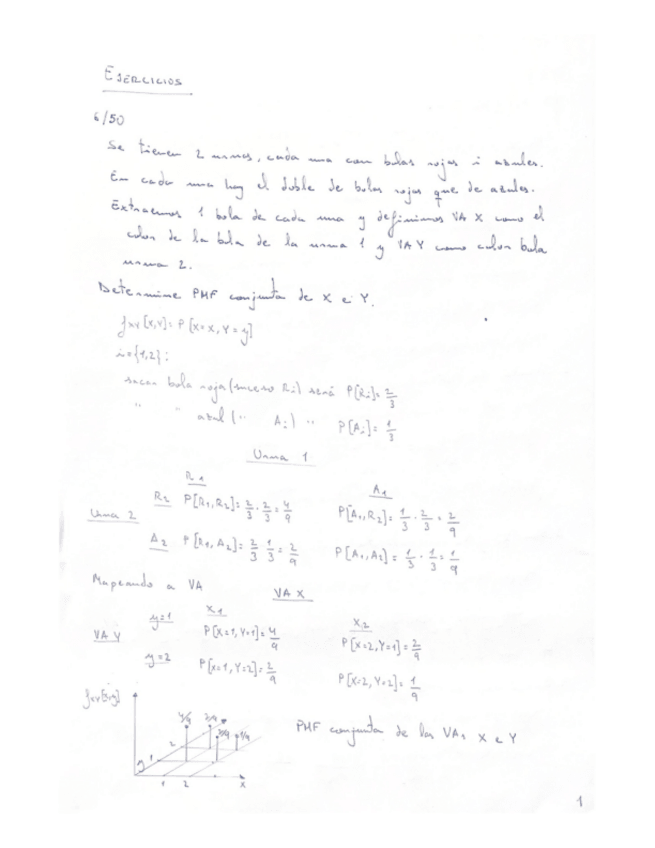 EJERCICIOS
6/50
Se tienen 2 urnas, cada una con bolas rojas i azules.
En cada una hay el doble de bolas rojas que de azules.
Extraemos 1 bola de cada una y definimos VA X como el
color de la bola de la urna 1 y VA Y como color bola
urna 2.
Determine PMF conjunta de X e Y.
fxy[x,y]= P[X=x, Y=y]
i={1,2}:
sacar bola roja (suceso Ri) será P[Ri]= 2/3
" " azul (" Ai) " P[Ai]= 1/3
Urna 1
R1 A1
Urna 2 R2 P[R1,R2]= 2/3 · 2/3 = 4/9 P[A1,R2]= 1/3 · 2/3 = 2/9
A2 P[R1,A2]= 2/3 · 1/3 = 2/9 P[A1,A2]= 1/3 · 1/3 = 1/9
Mapeando a VA
VA X
X1 X2
VA Y y=1 P[X=1,Y=1]= 4/9 P[X=2,Y=1]= 2/9
y=2 P[X=1,Y=2]= 2/9 P[X=2,Y=2]= 1/9
fxy[x,y]
4/9 2/9 2/9 1/9
2
y 1
1 2 X
PMF conjunta de las VAs X e Y
1